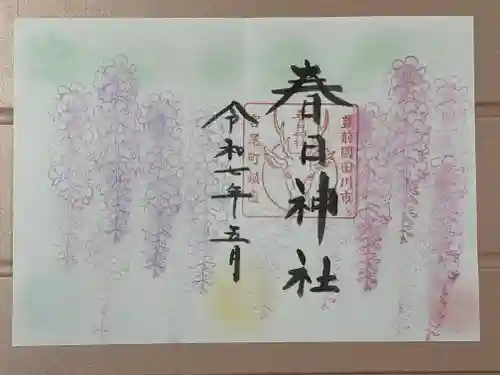 春日神社
豊前國田川市
宮尾町鎮座
令和七年五月